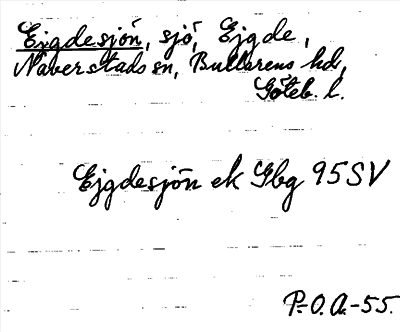 Ejgdesjön, sjö, Ejgde,
Naverstads sn, Bullarens hd,
Göteb. l.
Ejgdesjön ek Gbg 95SV
P.O.A.-55.